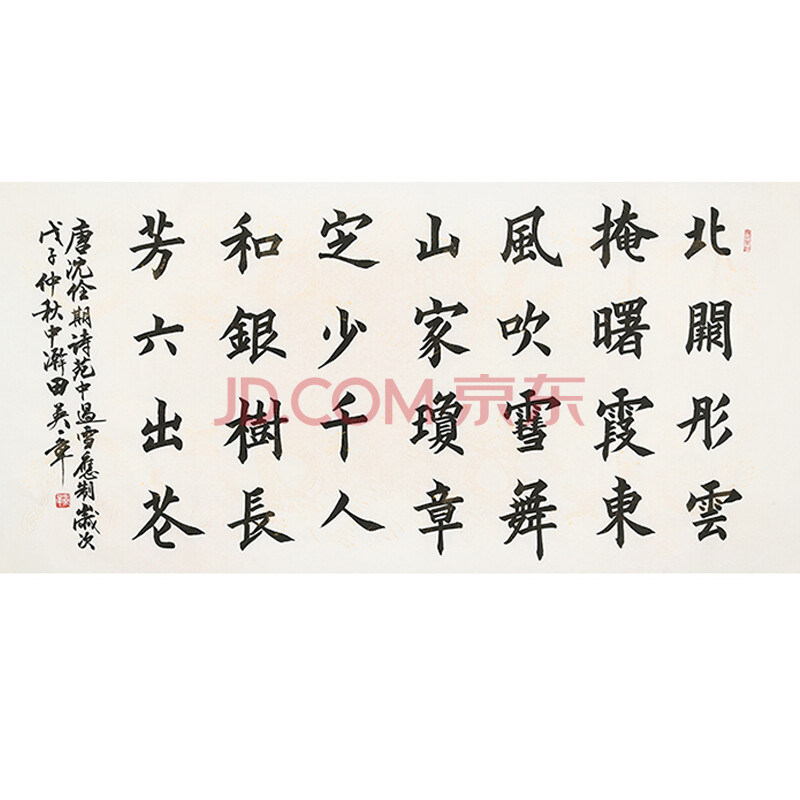 北闕彤雲
掩曙霞東
風吹雪舞
山家瓊章
定少千人
和銀樹長
芳六出花
唐沈佺期詩苑中遇雪應制歲次
戊子仲秋中澣田英章
JD.COM 京东